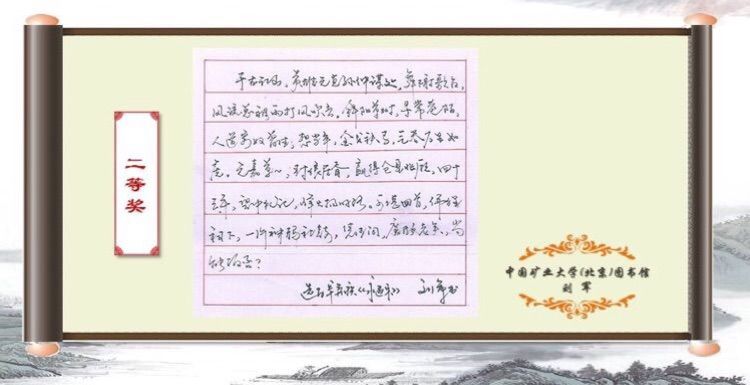 二等奖
千古江山,英雄无觅孙仲谋处。舞榭歌台,
风流总被雨打风吹去。斜阳草树,寻常巷陌,
人道寄奴曾住。想当年,金戈铁马,气吞万里如
虎。元嘉草草,封狼居胥,赢得仓皇北顾。四十
三年,望中犹记,烽火扬州路。可堪回首,佛狸
祠下,一片神鸦社鼓。凭谁问,廉颇老矣,尚
能饭否?
选自辛弃疾《永遇乐》 刘军书
中国矿业大学(北京)图书馆
刘军